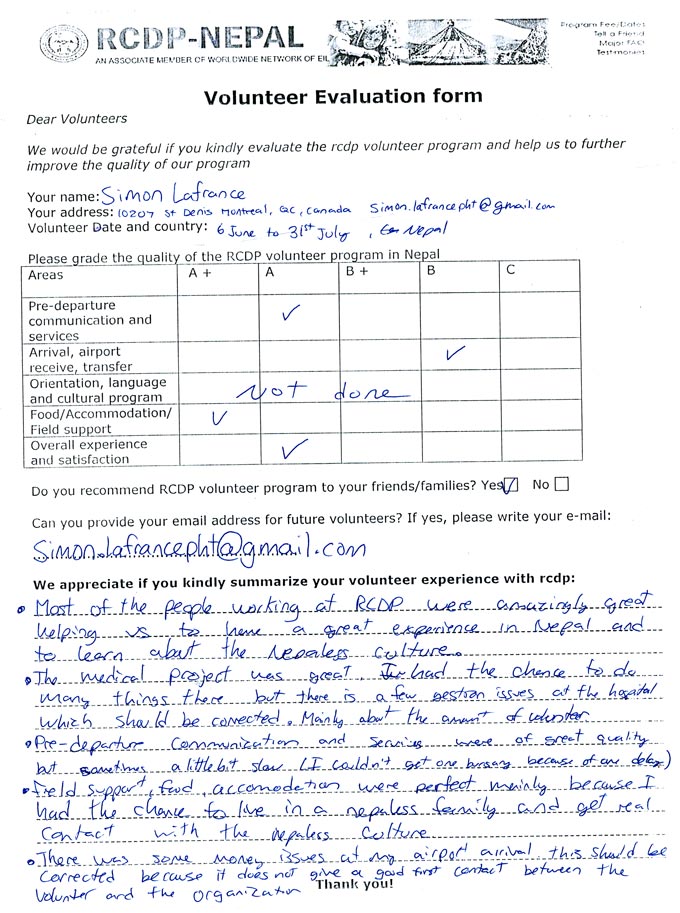 RCDP-NEPAL
AN ASSOCIATE MEMBER OF WORLDWIDE NETWORK OF EIL
Program Fee/Dates
Tell a Friend
Major FAQ
Testimonies
Volunteer Evaluation form
Dear Volunteers
We would be grateful if you kindly evaluate the rcdp volunteer program and help us to further
improve the quality of our program
Your name: Simon Lafrance
Your address: 10207 St Denis Montreal, QC, Canada Simon.lafrancepht@gmail.com
Volunteer Date and country: 6 June to 31st July, Nepal
Please grade the quality of the RCDP volunteer program in Nepal
Areas A + A B + B C
Pre-departure
communication and
services ✓
Arrival, airport
receive, transfer ✓
Orientation, language
and cultural program Not done
Food/Accommodation/
Field support ✓
Overall experience
and satisfaction ✓
Do you recommend RCDP volunteer program to your friends/families? Yes ☑ No ☐
Can you provide your email address for future volunteers? If yes, please write your e-mail:
Simon.lafrancepht@gmail.com
We appreciate if you kindly summarize your volunteer experience with rcdp:
• Most of the people working at RCDP were amazingly great
helping us to have a great experience in Nepal and
to learn about the nepaless culture.
• The medical project was great. I had the chance to do
many things there but there is a few gestion issues at the hospital
which should be corrected. Mainly about the amount of volunter
• Pre-departure communication and services were of great quality
but sometimes a little bit slow (I couldn't get one because of any delay)
• Field support, food, accomodation were perfect mainly because I
had the chance to live in a nepaless family and get real
contact with the nepaless culture
• There was some money issues at my airport arrival, this should be
corrected because it does not give a good first contact between the
volunter and the organization
Thank you!